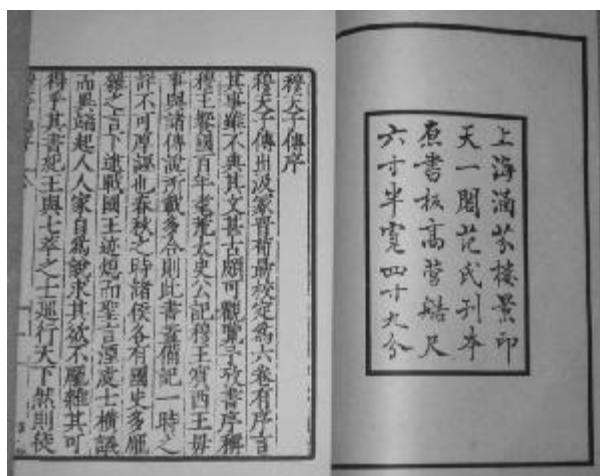 上海涵芬樓景印
天一閣范氏刊本
原書板高營造尺
六寸半寬四寸九分
穆天子傳序
穆天子傳出汲冢晉荀勗校定爲六卷有序言
其事雖不典其文甚古頗可觀覽予攷書序稱
穆王饗國百年耄荒太史公記穆王賓西王毋
事與諸傳說所載多合則此書蓋備記一時之
詳不可厚誣也春秋之時諸侯各有國史多厖
雜之言下逮戰國王迹熄而聖言湮處士橫議
而異端起人人家自爲說求其欲不厖雜其可
得乎其書紀王與七萃之士巡行天下然則徒